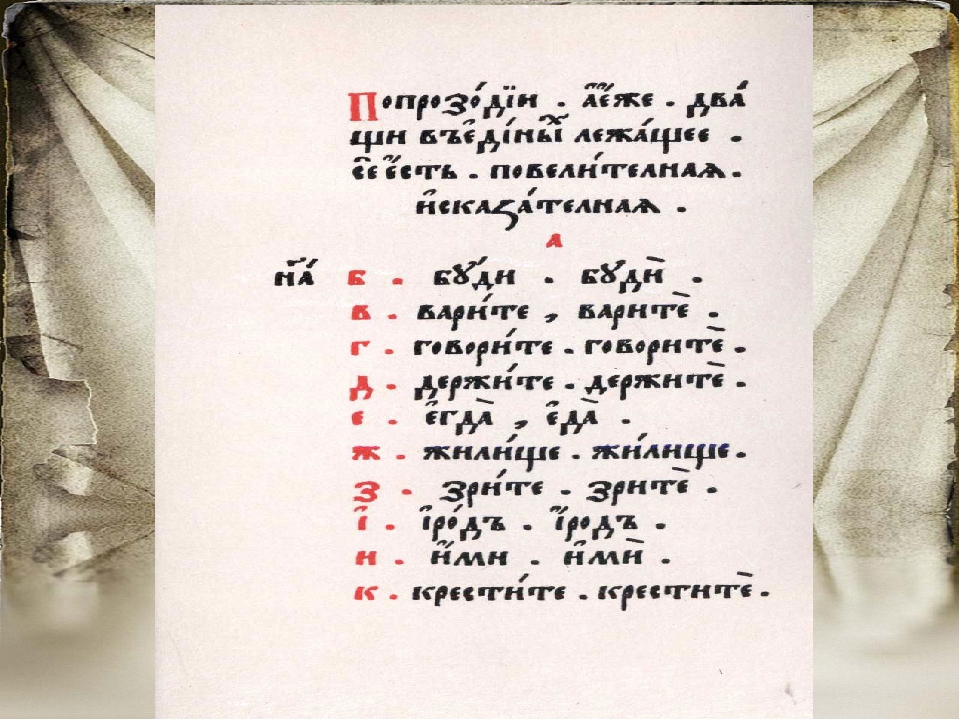 Попрозо́дїи . а҆́еже . два́
щи въе҆ди́ны́х лежа́щее .
се е҆́сть . повели́телнаꙗ .
и҆сказа́телнаꙗ .
а
на́ б . бꙋ́ди . бꙋдѝ .
в . вари́те , варитѐ .
г . говори́те . говоритѐ .
д . держи́те . держитѐ .
е . е҆гда̀ , е҆да̀ .
ж . жили́ще . жи́лище .
з . зри́те . зритѐ .
і . і҆ро́дъ . і҆́родъ .
и . и҆́ми . и҆мѝ .
к . крести́те . креститѐ .